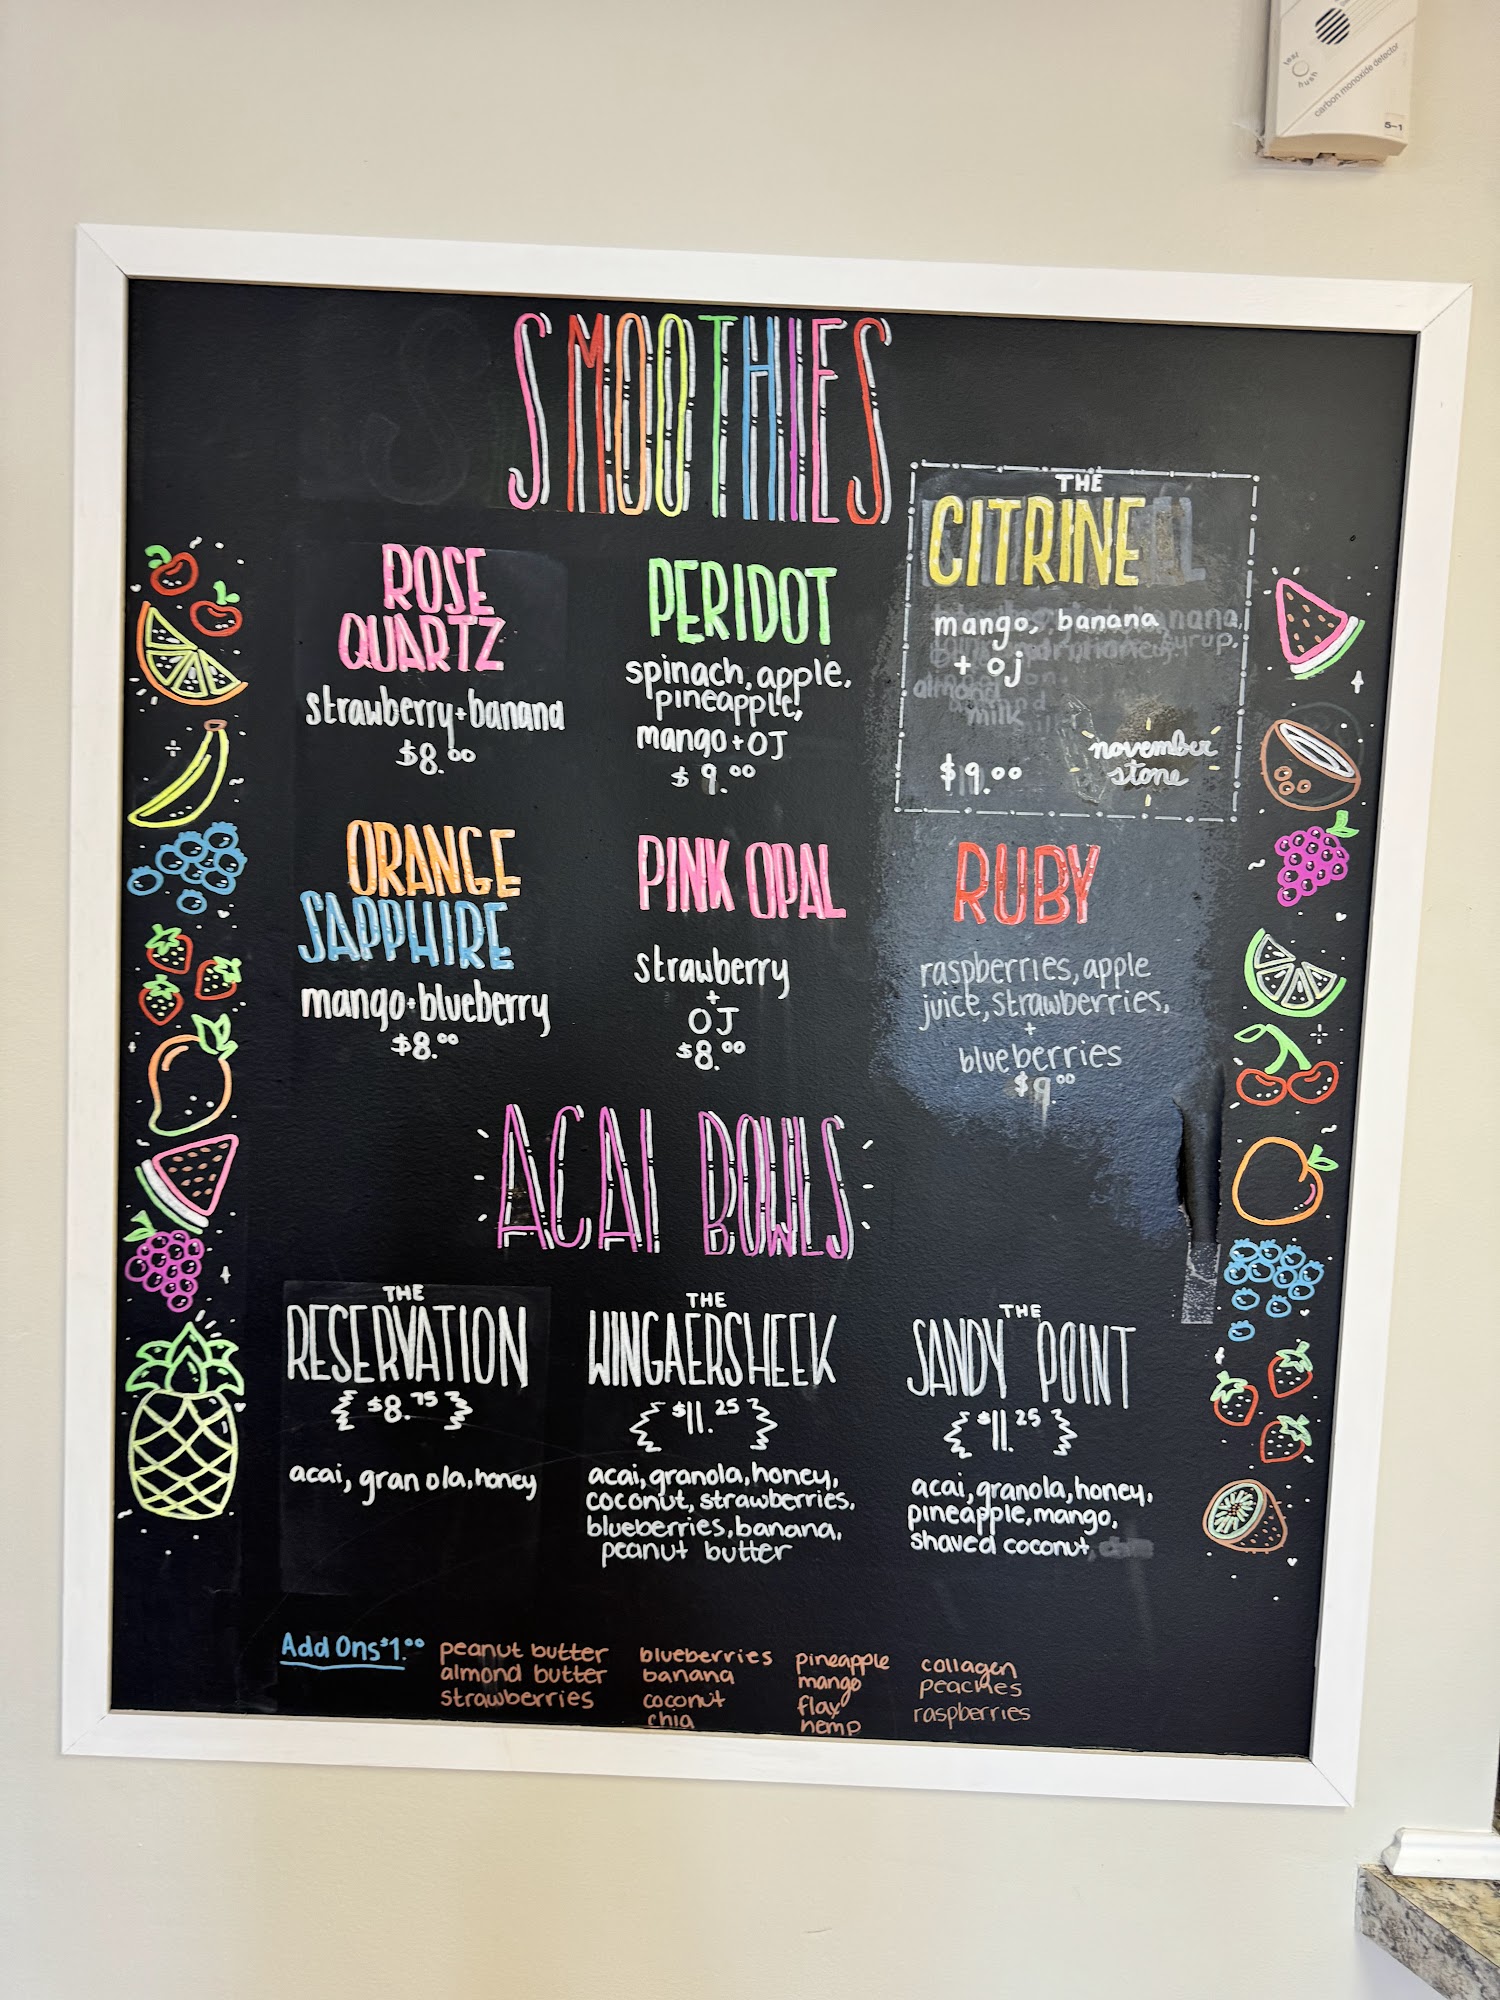 test
hush
carbon monoxide detector
5-1
SMOOTHIES
ROSE
QUARTZ
strawberry+banana
$8.00
PERIDOT
spinach, apple,
pineapple,
mango+OJ
$9.00
THE
CITRINE
mango, banana
+ oj
$9.00
november
stone
ORANGE
SAPPHIRE
mango+blueberry
$8.00
PINK OPAL
strawberry
+
OJ
$8.00
RUBY
raspberries, apple
juice, strawberries,
+
blueberries
$9.00
ACAI BOWLS
THE
RESERVATION
$8.75
acai, granola, honey
THE
WINGAERSHEEK
$11.25
acai, granola, honey,
coconut, strawberries,
blueberries, banana,
peanut butter
THE
SANDY POINT
$11.25
acai, granola, honey,
pineapple, mango,
shaved coconut
Add Ons $1.00
peanut butter
almond butter
strawberries
blueberries
banana
coconut
chia
pineapple
mango
flax
hemp
collagen
peaches
raspberries